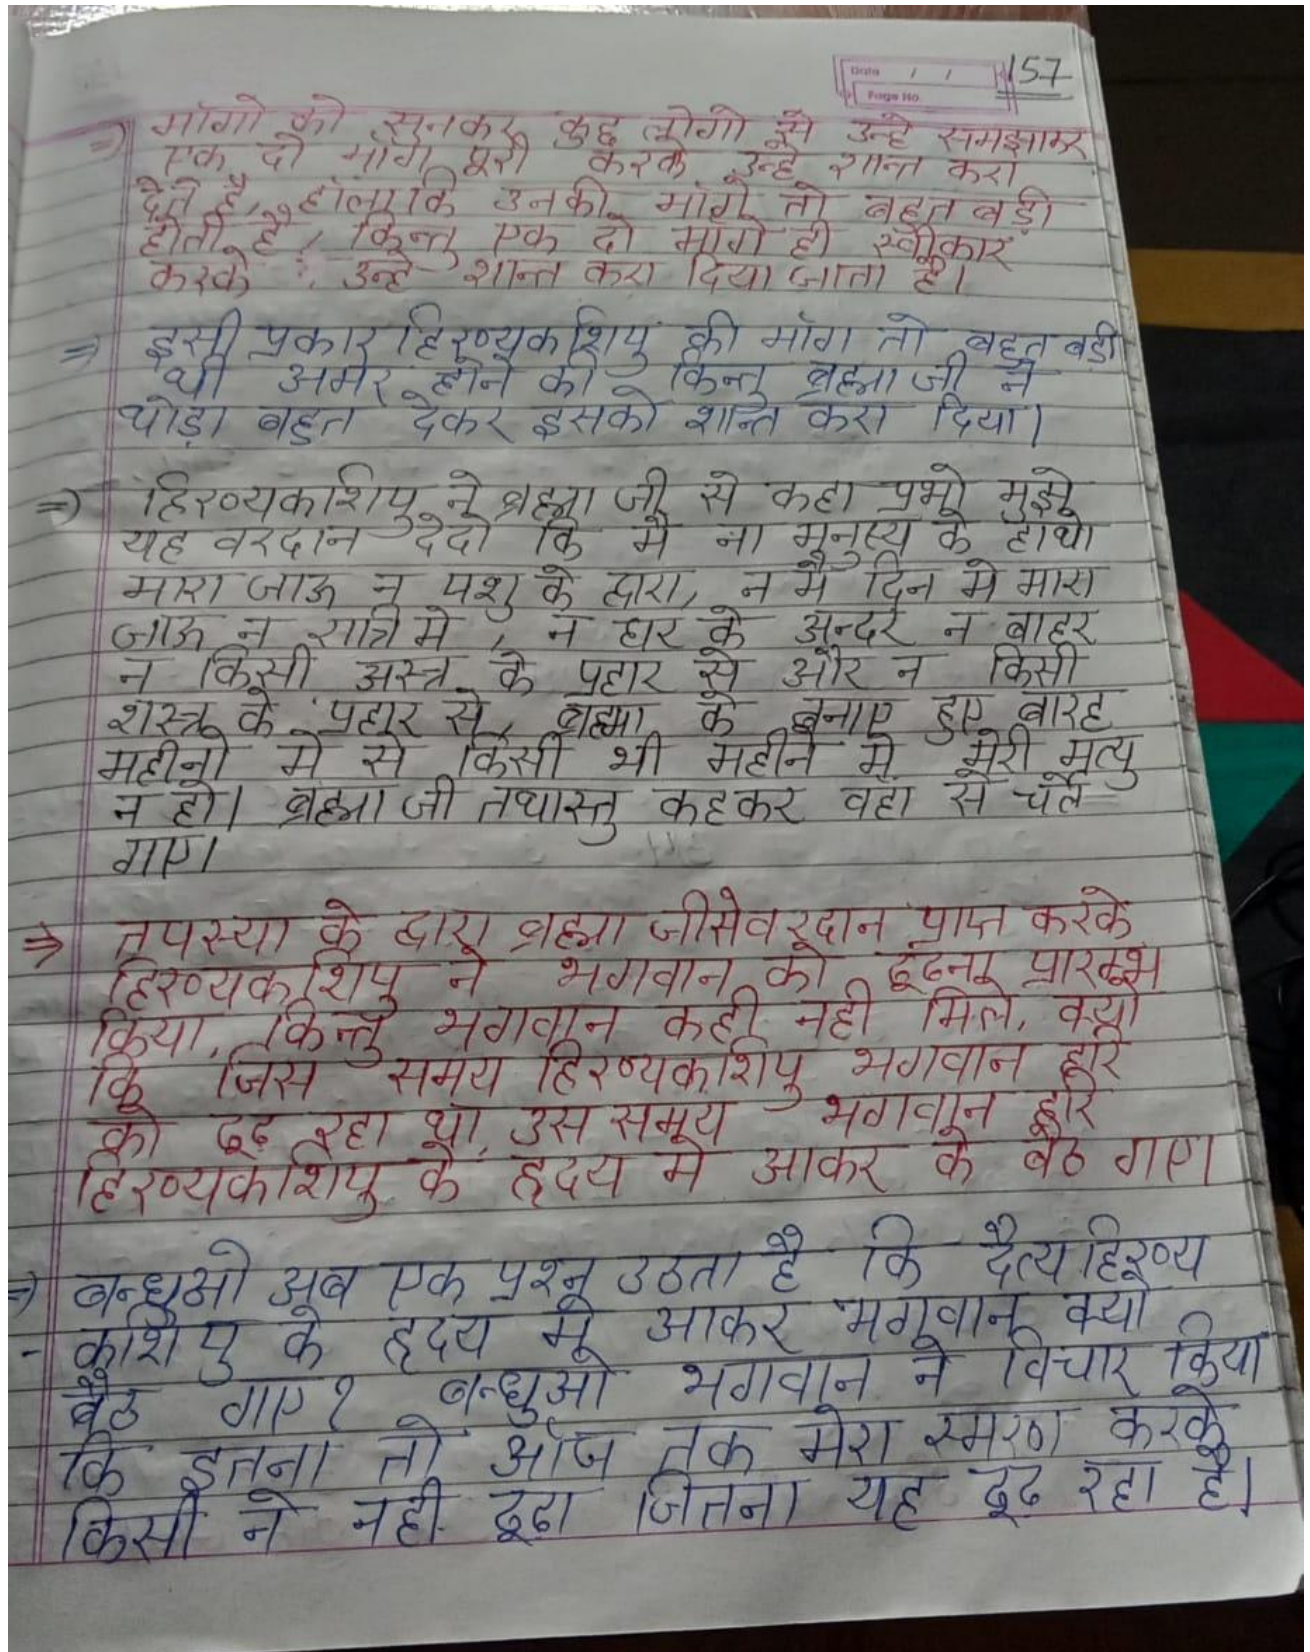 Date / / 157
Page No.
⇒ माँगो को सुनकर कुछ लोगो से उन्हे समझाकर
एक दो माँग पूरी करके उन्हे शान्त करा
देते है, हॉलाकि उनकी माँगे तो बहुत बडी
होती है, किन्तु एक दो माँगे ही स्वीकार
करके उन्हे शान्त करा दिया जाता है।
⇒ इसी प्रकार हिरण्यकशिपु की माँग तो बहुत बडी
थी अमर होने की किन्तु ब्रह्मा जी ने
थोड़ा बहुत देकर इसको शान्त करा दिया।
⇒ हिरण्यकशिपु ने ब्रह्मा जी से कहा प्रभो मुझे
यह वरदान देदो कि मै ना मुनुष्य के हाथो
मारा जाऊ न पशु के द्वारा, न मै दिन मे मारा
जाऊ न रात्रि मे, न घर के अन्दर न बाहर
न किसी अस्त्र के प्रहार से और न किसी
शस्त्र के प्रहार से, ब्रह्मा के बनाए हुए बारह
महीनो मे से किसी भी महीने मे मेरी मृत्यु
न हो। ब्रह्मा जी तथास्तु कहकर वहा से चले
गए।
⇒ तपस्या के द्वारा ब्रह्मा जीसेवरदान प्राप्त करके
हिरण्यकशिपु ने भगवान को ढूंढना प्रारम्भ
किया, किन्तु भगवान कही नही मिले, क्यो
कि जिस समय हिरण्यकशिपु भगवान हरि
को ढूढ रहा था, उस समय भगवान हरि
हिरण्यकशिपु के हृदय मे आकर के बैठ गए।
⇒ बन्धुओ अब एक प्रश्न उठता है कि दैत्य हिरण्य
- कशिपु के हृदय मे आकर भगवान क्यो
बैठ गए? बन्धुओ भगवान ने विचार किया
कि इतना तो ऑज तक मेरा स्मरण करके
किसी ने नही ढूढा जितना यह ढूढ रहा है।